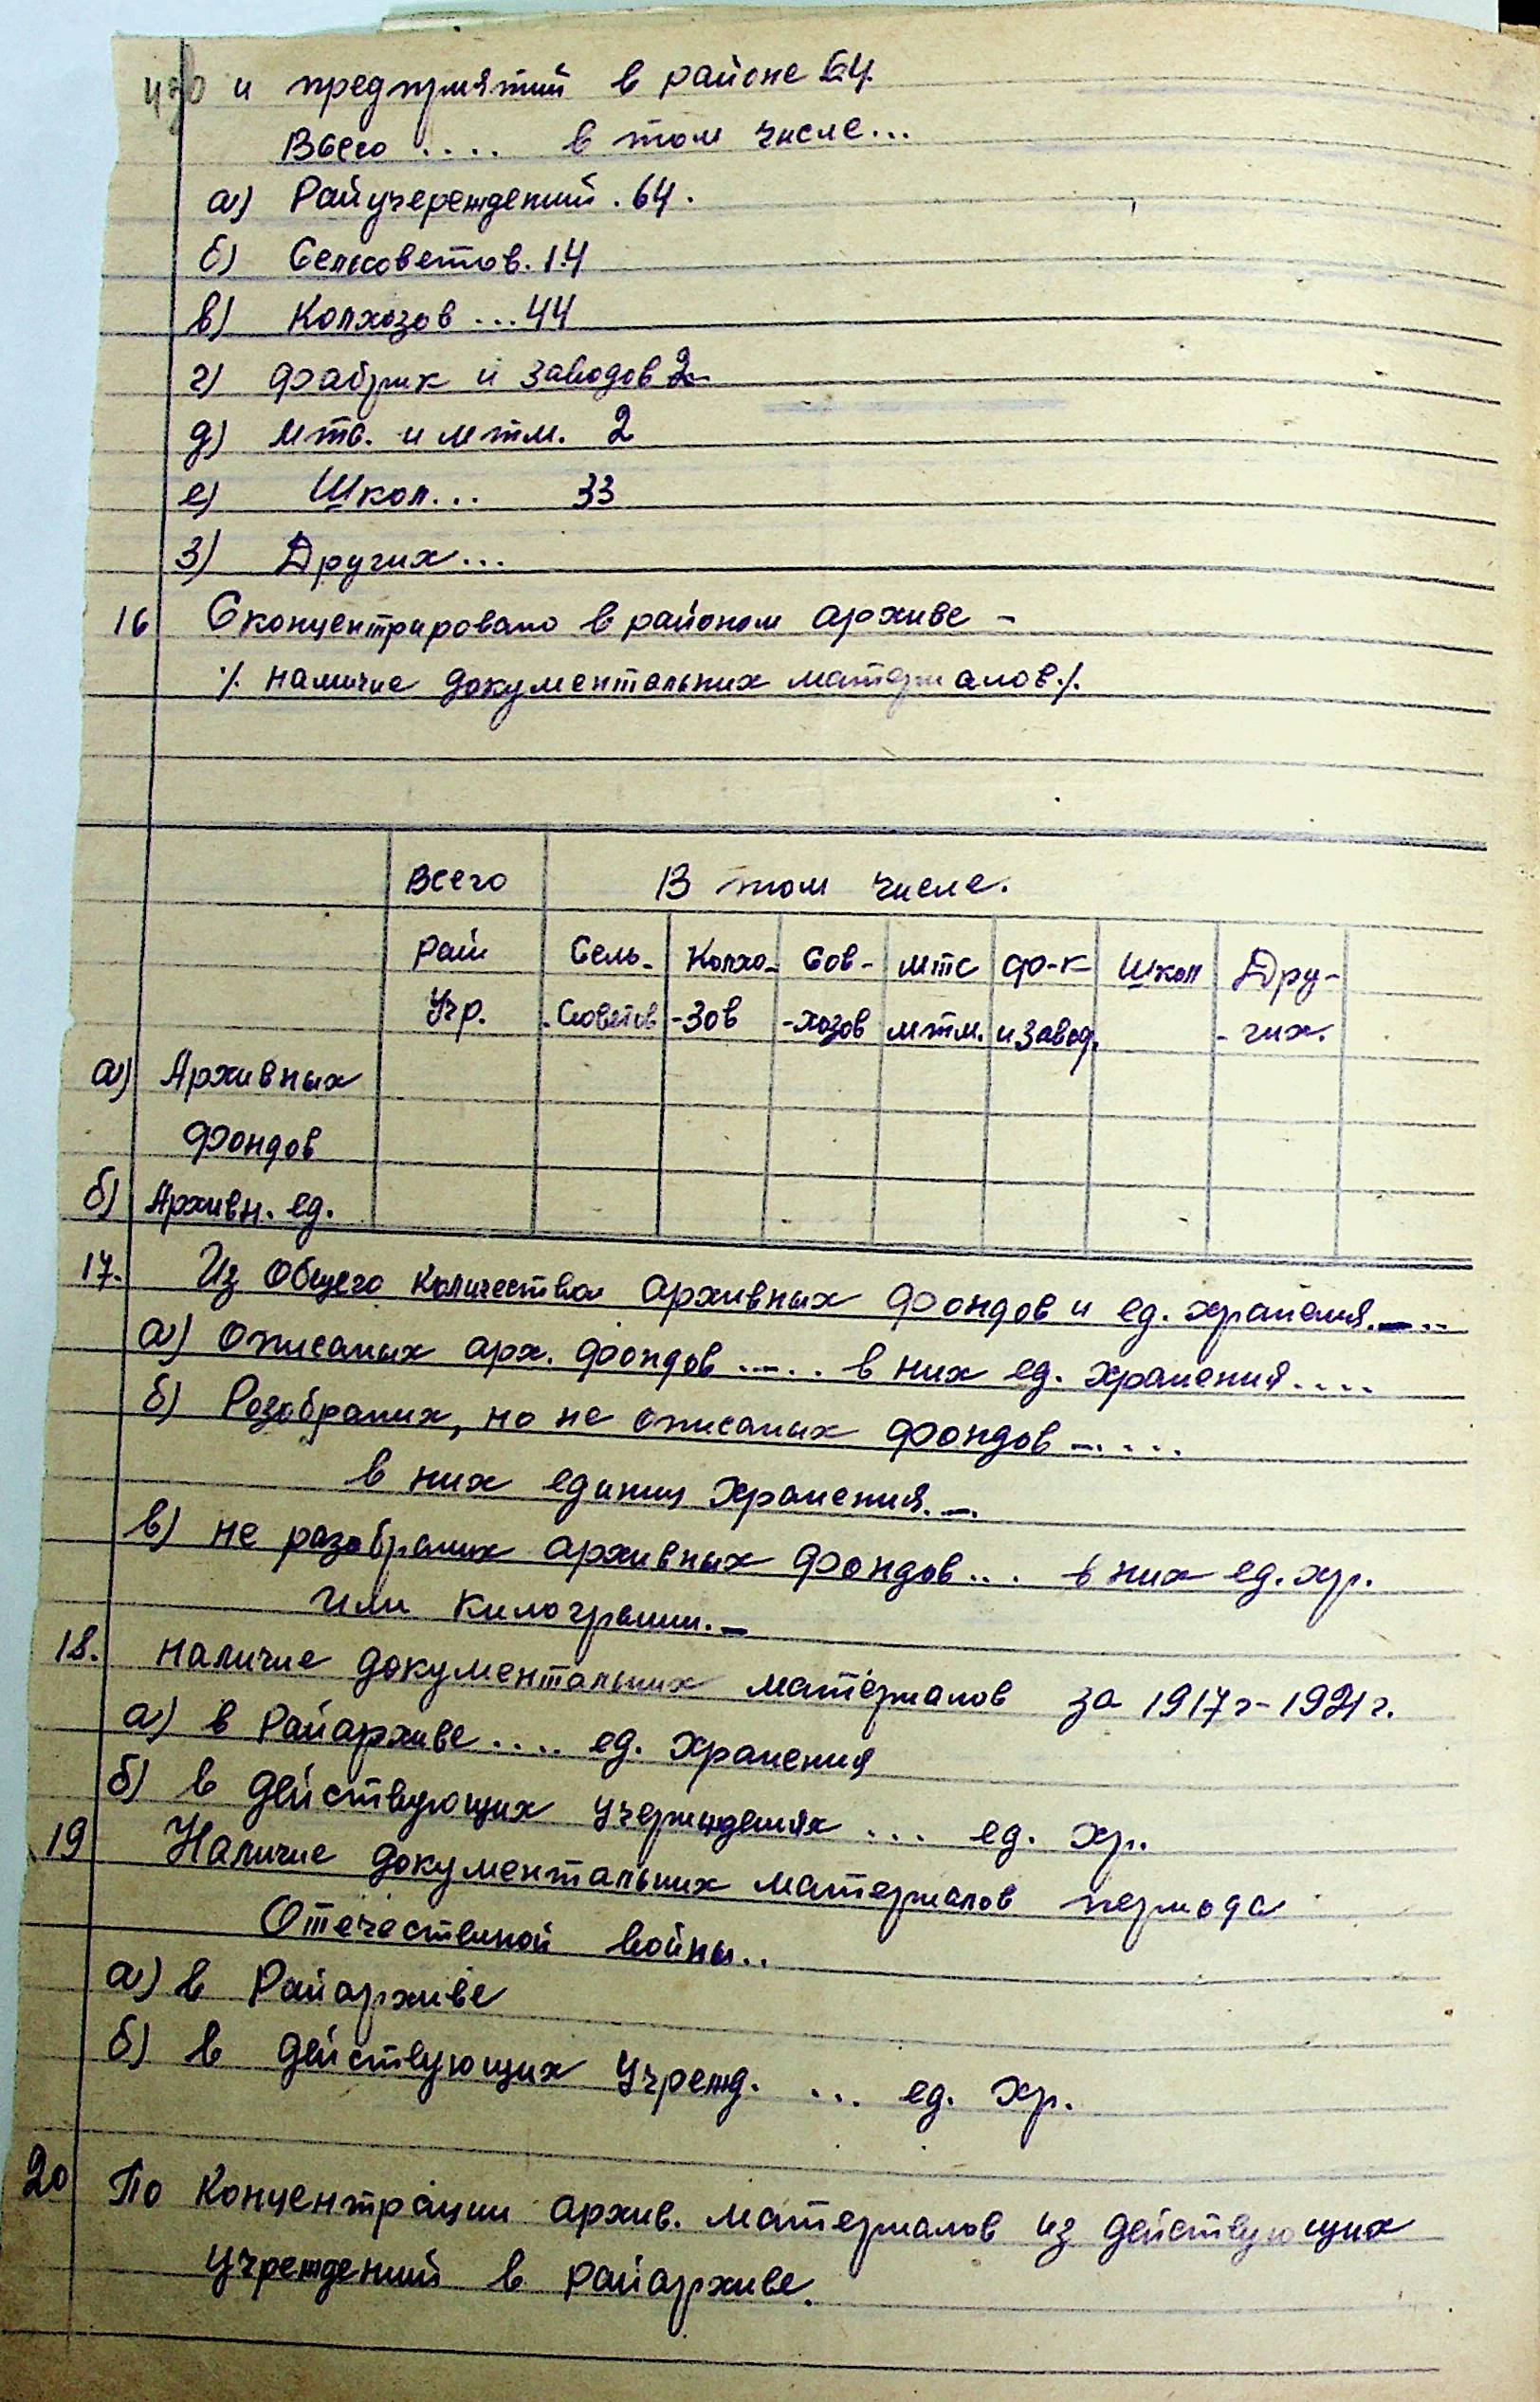 и предприятий в районе 64
Всего .... в том числе...
а) Райучереждений . 64.
б) Сельсоветов. 14
в) Колхозов ... 44
г) Фабрик и заводов 2
д) мтс. и мтм. 2
е) Школ... 33
з) Других...
16 Сконцентрировано в районом архиве -
·/. наличие документальных материалов ·/.
Всего В том числе.
Рай Сель- Колхо- Сов- мтс ф-к Школ Дру-
Учр. -Советов -зов -хозов мтм. и завод. -гих.
а) Архивных
Фондов
б) Архивн. ед.
17. Из Общего количества архивных фондов и ед. хранения.-..
а) Описаных арх. фондов ..... в них ед. хранения....
б) Разобраных, но не описаных фондов -....
в них единиц хранения.-.
в) не разобраных архивных фондов... в них ед. хр.
или килограмм.-
18. наличие документальных материалов за 1917г-1921г.
а) в Райархиве .... ед. хранения
б) в действующих учереждениях ... ед. хр.
19 Наличие документальных материалов периода
Отечественой войны..
а) в Райархиве
б) в действующих Учрежд. ... ед. хр.
20 По концентрации архив. материалов из действующих
учреждений в райархиве.